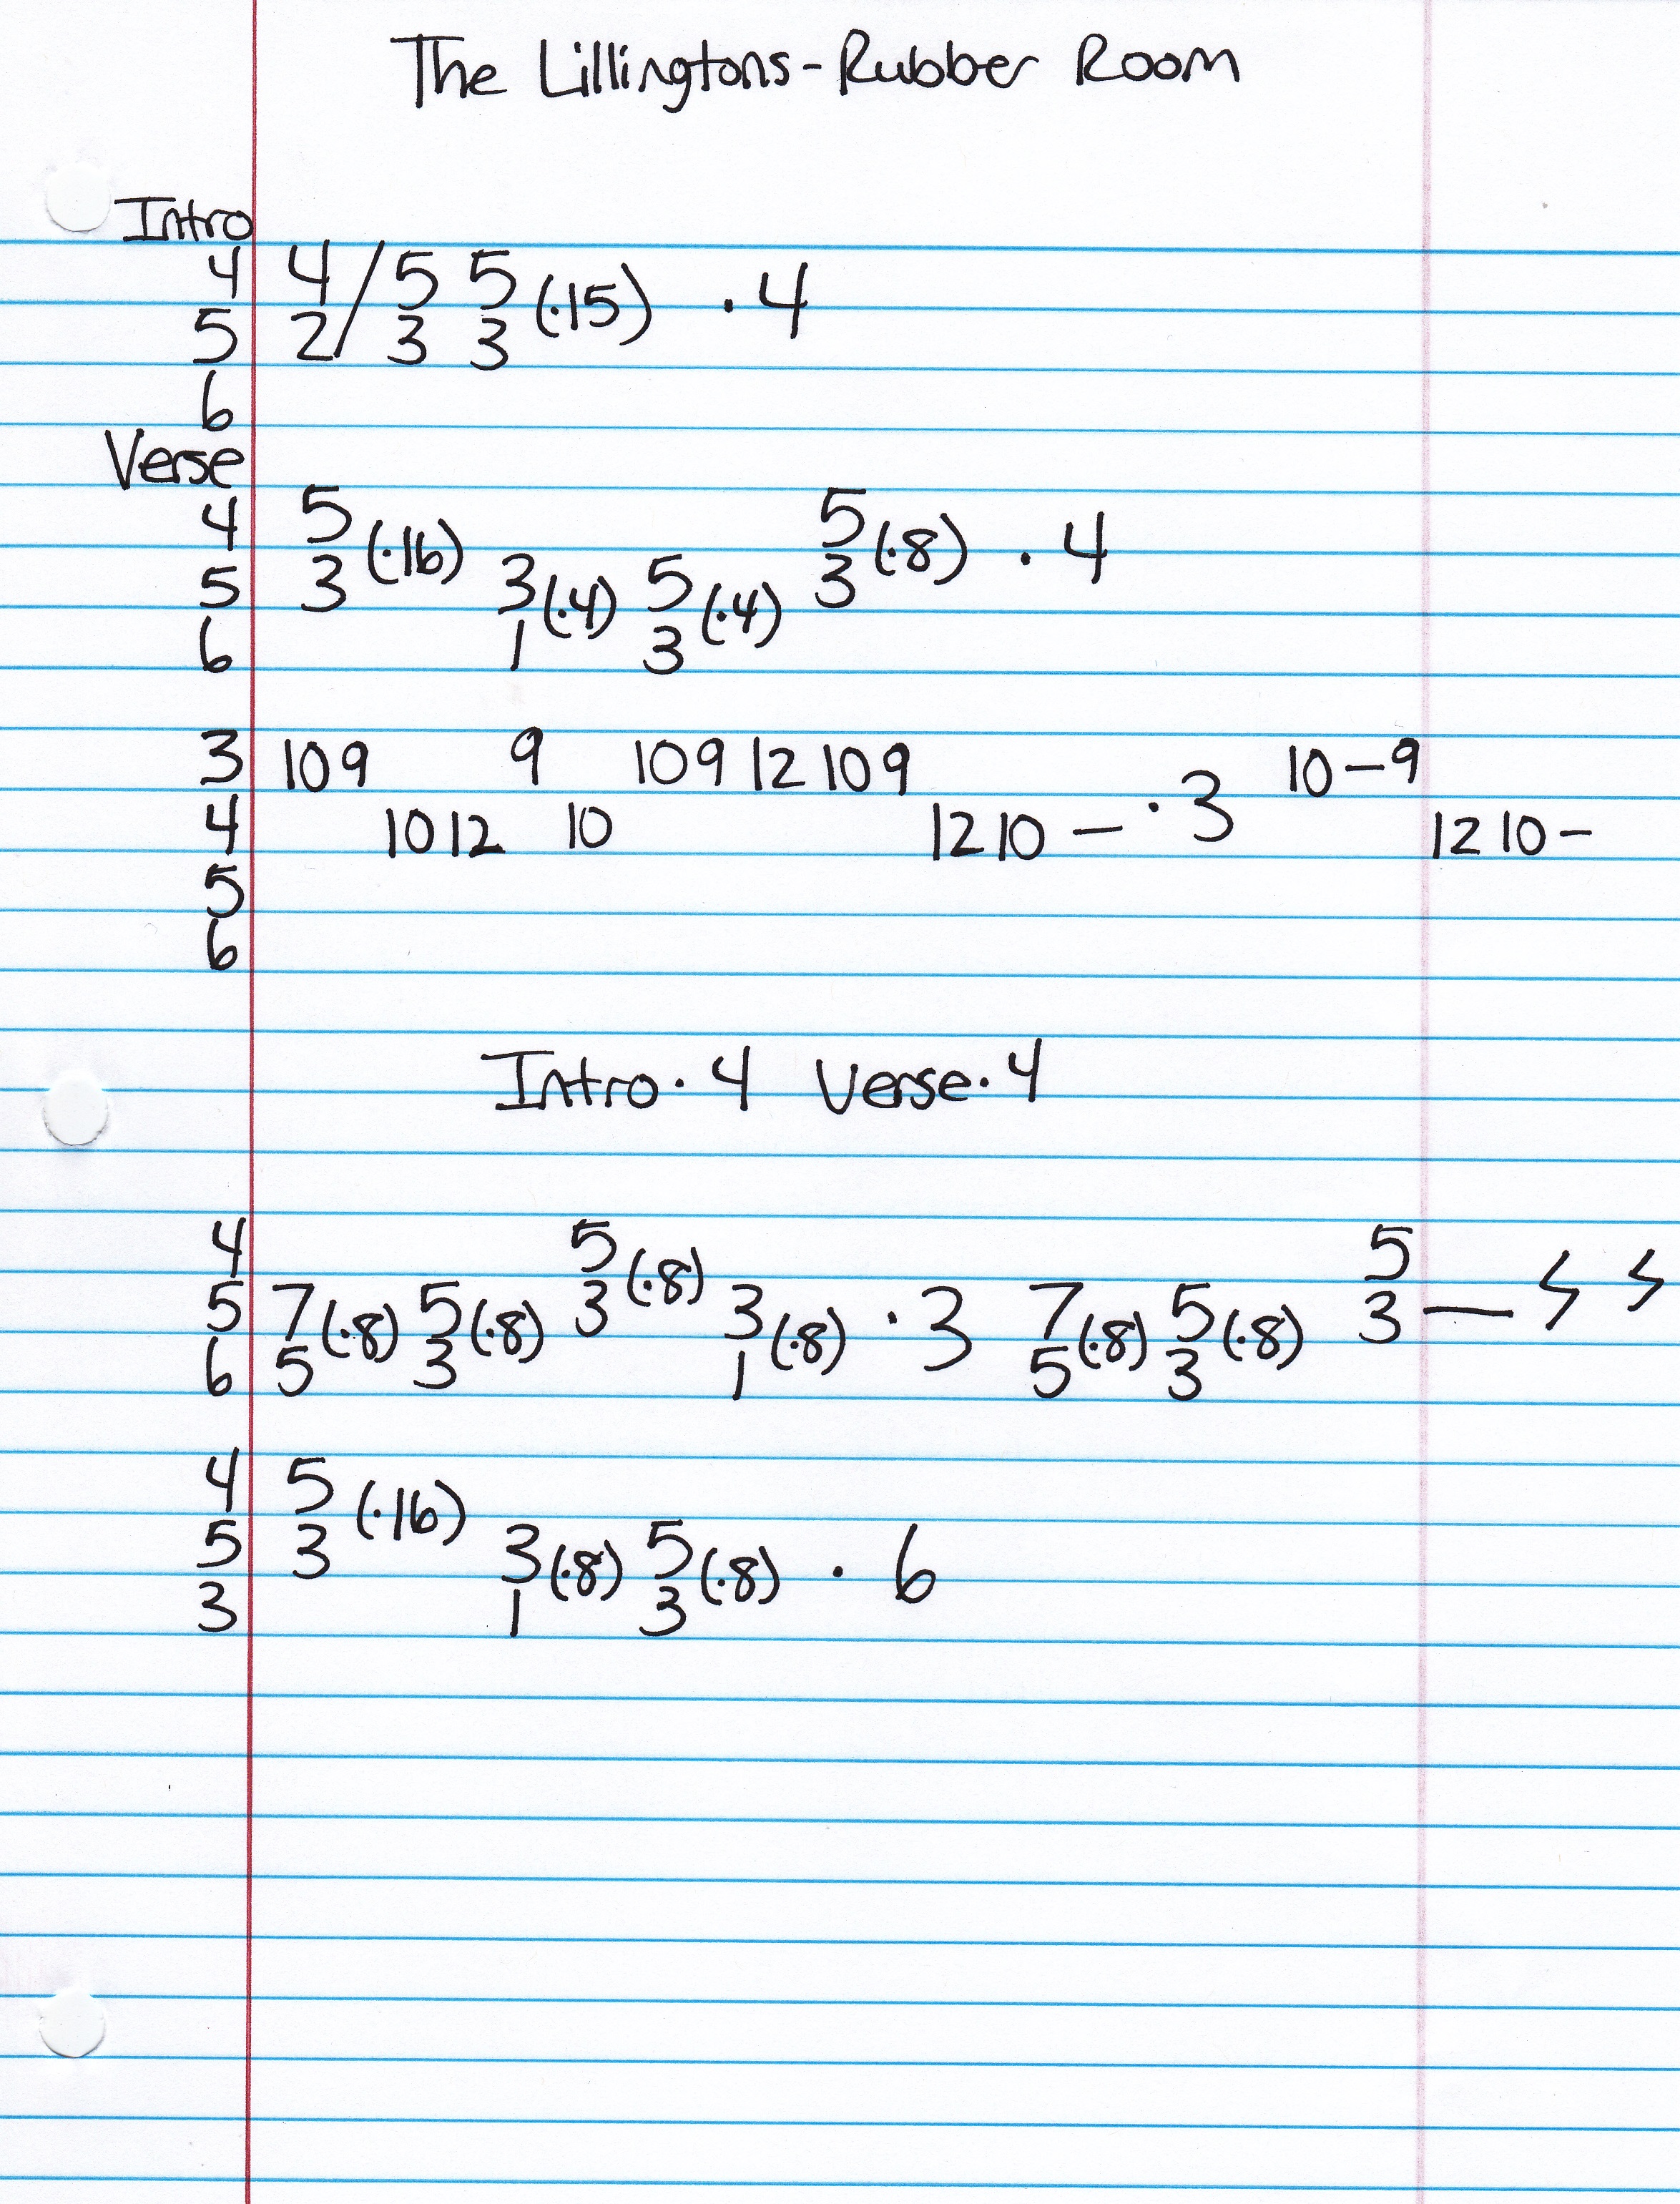 The Lillingtons - Rubber Room
Intro
4 4/5 5 (·15) · 4
5 2/3 3
6
Verse
4 5 (·16) 5 (·8) · 4
5 3 3 (·4) 5 (·4) 3
6 1 3
3 10 9 9 10 9 12 10 9 · 3 10 - 9
4 10 12 10 12 10 — 12 10 -
5
6
Intro · 4 Verse · 4
4 5 (·8) 5
5 7 (·8) 5 (·8) 3 3 (·8) · 3 7 (·8) 5 (·8) 3 —
6 5 3 1 5 3
4 5 (·16)
5 3 3 (·8) 5 (·8) · 6
3 1 3